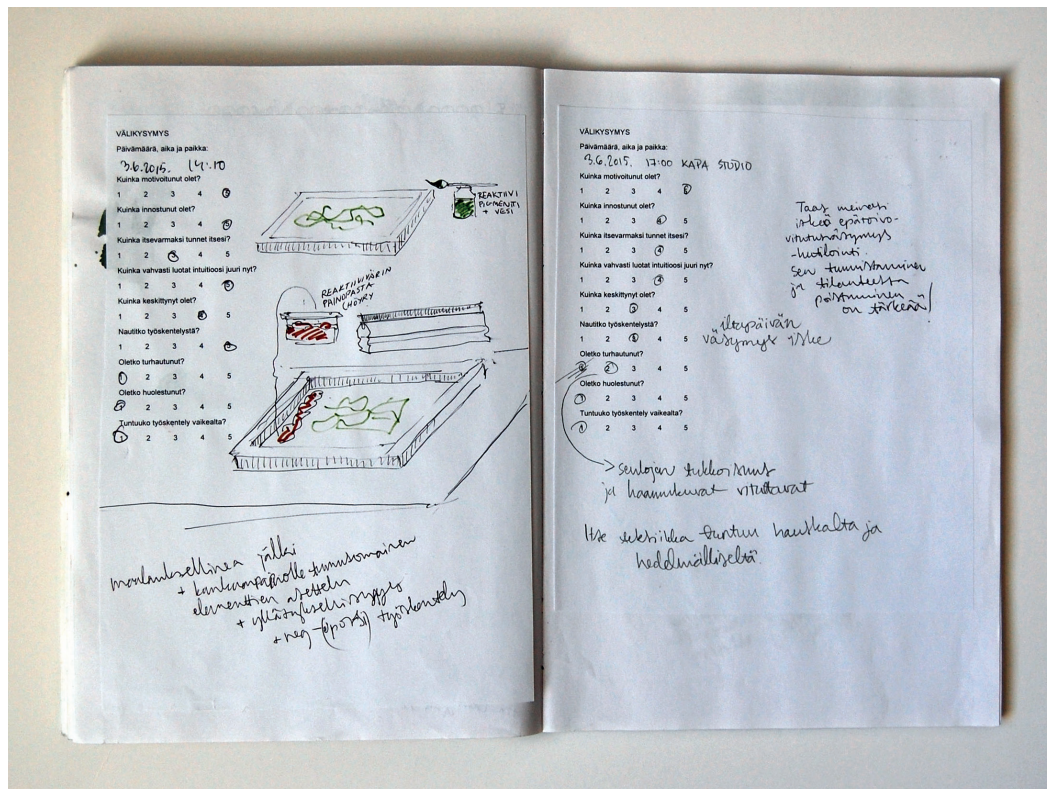 VÄLIKYSYMYS
Päivämäärä, aika ja paikka:
3.6.2015. 14:10
Kuinka motivoitunut olet?
1 2 3 4 5
Kuinka innostunut olet?
1 2 3 4 5
Kuinka itsevarmaksi tunnet itsesi?
1 2 3 4 5
Kuinka vahvasti luotat intuitioosi juuri nyt?
1 2 3 4 5
Kuinka keskittynyt olet?
1 2 3 4 5
Nautitko työskentelystä?
1 2 3 4 5
Oletko turhautunut?
1 2 3 4 5
Oletko huolestunut?
1 2 3 4 5
Tuntuuko työskentely vaikealta?
1 2 3 4 5
REAKTIIVI
PIGMENTTI
+ VESI
REAKTIIVIVÄRIN
PAINOPASTA
(HÖYRY
maalauksellinen jälki
+ kankaanpainolle tunnusomainen
elementtien asettelu
+ yllätyksellisyys
+ neg-(&posi) työskentely
VÄLIKYSYMYS
Päivämäärä, aika ja paikka:
3.6.2015. 17:00 KAPA STUDIO
Kuinka motivoitunut olet?
1 2 3 4 5
Kuinka innostunut olet?
1 2 3 4 5
Kuinka itsevarmaksi tunnet itsesi?
1 2 3 4 5
Kuinka vahvasti luotat intuitioosi juuri nyt?
1 2 3 4 5
Kuinka keskittynyt olet?
1 2 3 4 5
Nautitko työskentelystä?
1 2 3 4 5
Oletko turhautunut?
1 2 3 4 5
Oletko huolestunut?
1 2 3 4 5
Tuntuuko työskentely vaikealta?
1 2 3 4 5
Taas meinasi
iskeä epätoivo-
vitutusväsymys
-huotilointi.
Sen tunnistaminen
ja tilanteesta
poistuminen
on tärkeää!
iltapäivän
väsymys iske
seulojen tukkoisuus
ja haamukuvat vituttavat
Itse tekniikka tuntuu hauskalta ja
hedelmälliseltä.